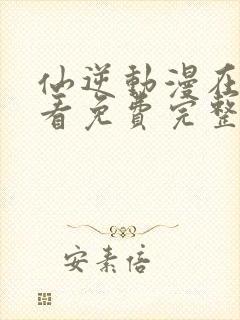 仙逆動漫在
看免費完整
安素倍